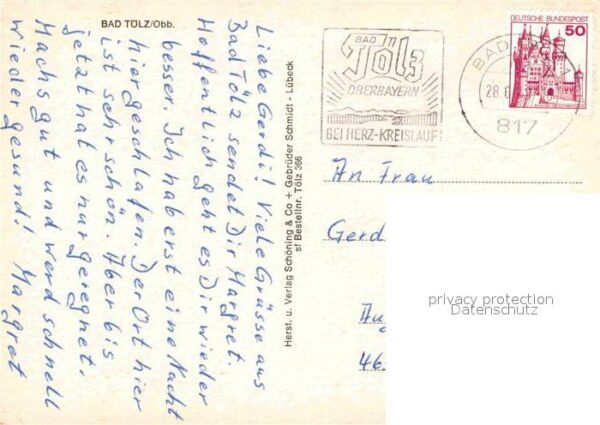 BAD TÖLZ/Obb.
Liebe Gerdi! Viele Grüsse aus
Bad Tölz sendet Dir Margret.
Hoffentlich geht es Dir wieder
besser. Ich hab erst eine Nacht
hier geschlafen. Der Ort hier
ist sehr schön. Aber bis
jetzt hat es nur geregnet.
Machs gut und werd schnell
wieder gesund! Margret
Herst. u. Verlag Schöning & Co + Gebrüder Schmidt - Lübeck
sf Bestellnr. Tölz 366
BAD
Tölz
OBERBAYERN
BEI HERZ-KREISLAUF
BAD
28.6
817
DEUTSCHE BUNDESPOST
50
An Frau
Gerd
46
privacy protection
Datenschutz